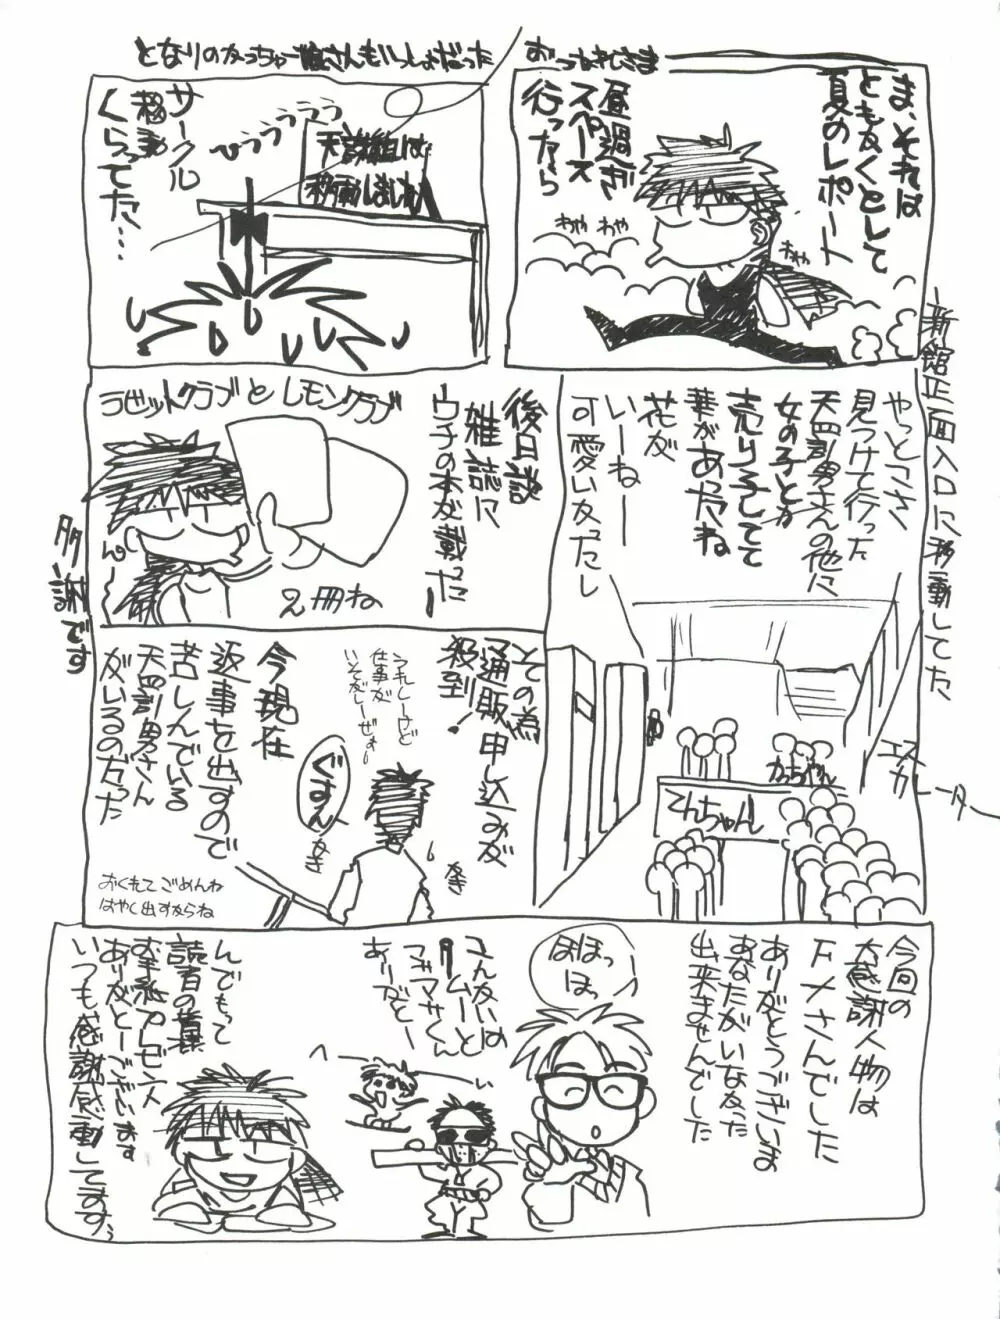 ま、それは
ともかくとして
夏のレポート
昼過ぎ
スペース
行ったら
わや わや
わや
おつかれさま
となりのかっちゃご娘さんもいっしょだった
天誅組は
移動しました
ひゅうぅぅぅぅ
サークル
移動
くらってた…
新館正面入口に移動してた
やっとこさ
見つけて行った
天四訓男さんの他に
女の子とか
売り子してて
華があったね
花が
いーねー
可愛いかったし
エスカレーター
かっちゃん
てんちゃん
後日談
雑誌に
ウチの本が載ったー
ラビットクラブとレモンクラブ
2冊ね
多謝です
その為
通販申し込みが
殺到!
うれしーけど
仕事が
いそがしーぜぇ
今現在
返事を出すので
苦しんでいる
天四訓男さん
がいるのだった
ぐすん
なき
なき
おくれてごめんね
はやく出すからね
今回の
大感謝人物は
F・Xさんでした
ありがとうございま
あなたがいなかった
出来ませんでした
ほほっ
ほっ
マサくん
ありがとー
んでもって
読者の皆様
お手紙プレゼント
ありがとーございます
いつも感謝感動してますぅ